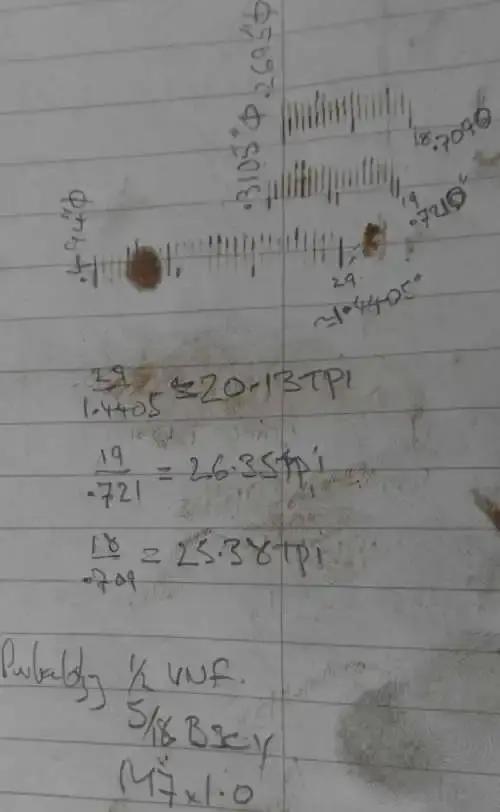 .2695"Φ
.3105"Φ
.494"Φ
18
.709"
19
.721"
29
≈1.4405"
29
1.4405 = 20.13 TPI
19
.721 = 26.35 tpi
18
.709 = 25.38 TPI
Probably 1/2 UNF.
BSCY
M7x1.0